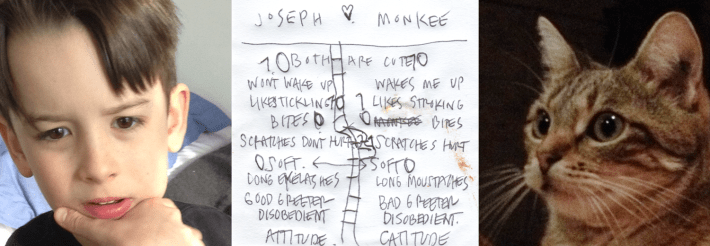 JOSEPH ♥. MONKEE
10 BOTH ARE CUTE 10
WONT WAKE UP WAKES ME UP
LIKES TICKLING 0 1 LIKES STROKING
BITES 0 0 BITES
SCRATCHES DONT HURT SCRATCHES HURT
0 SOFT. ← → SOFT 0
LONG EYELASHES LONG MOUSTACHES
GOOD GREETER BAD GREETER
DISOBEDIENT DISOBEDIENT.
ATTITUDE. CATTITUDE